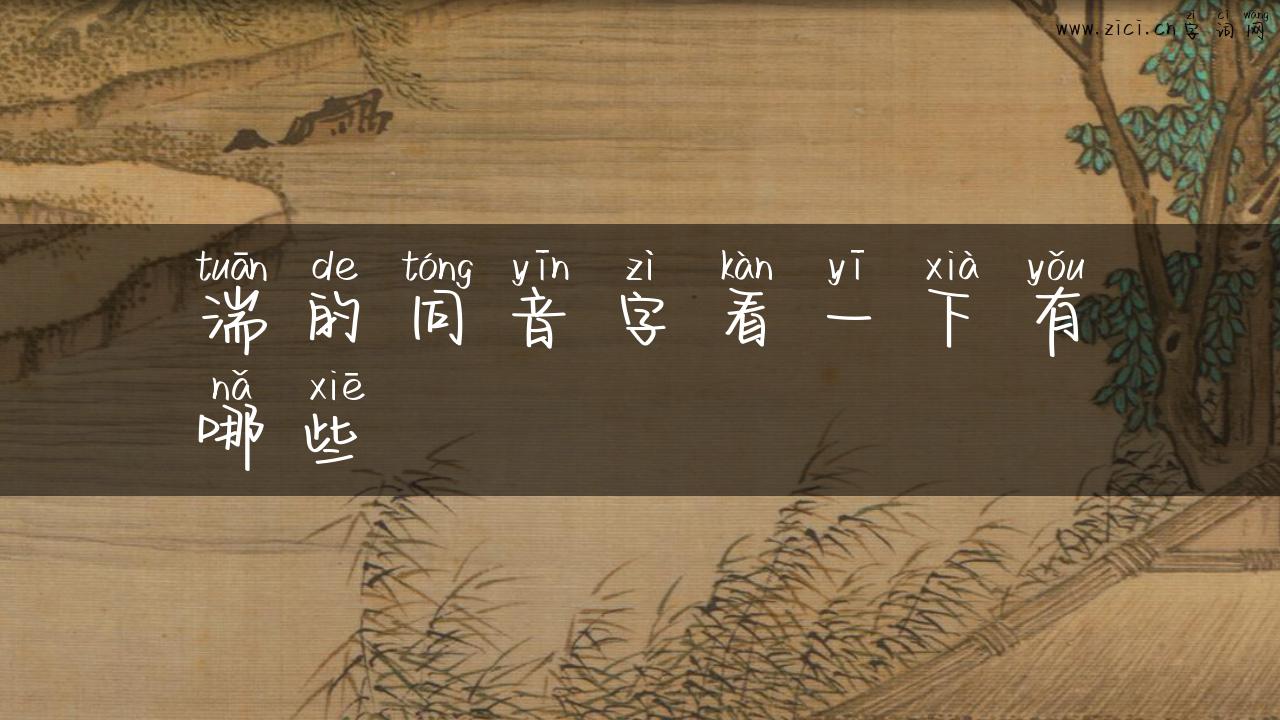 zì cí wǎng
www.zici.cn字词网
tuān de tóng yīn zì kàn yī xià yǒu
湍的同音字看一下有
nǎ xiē
哪些